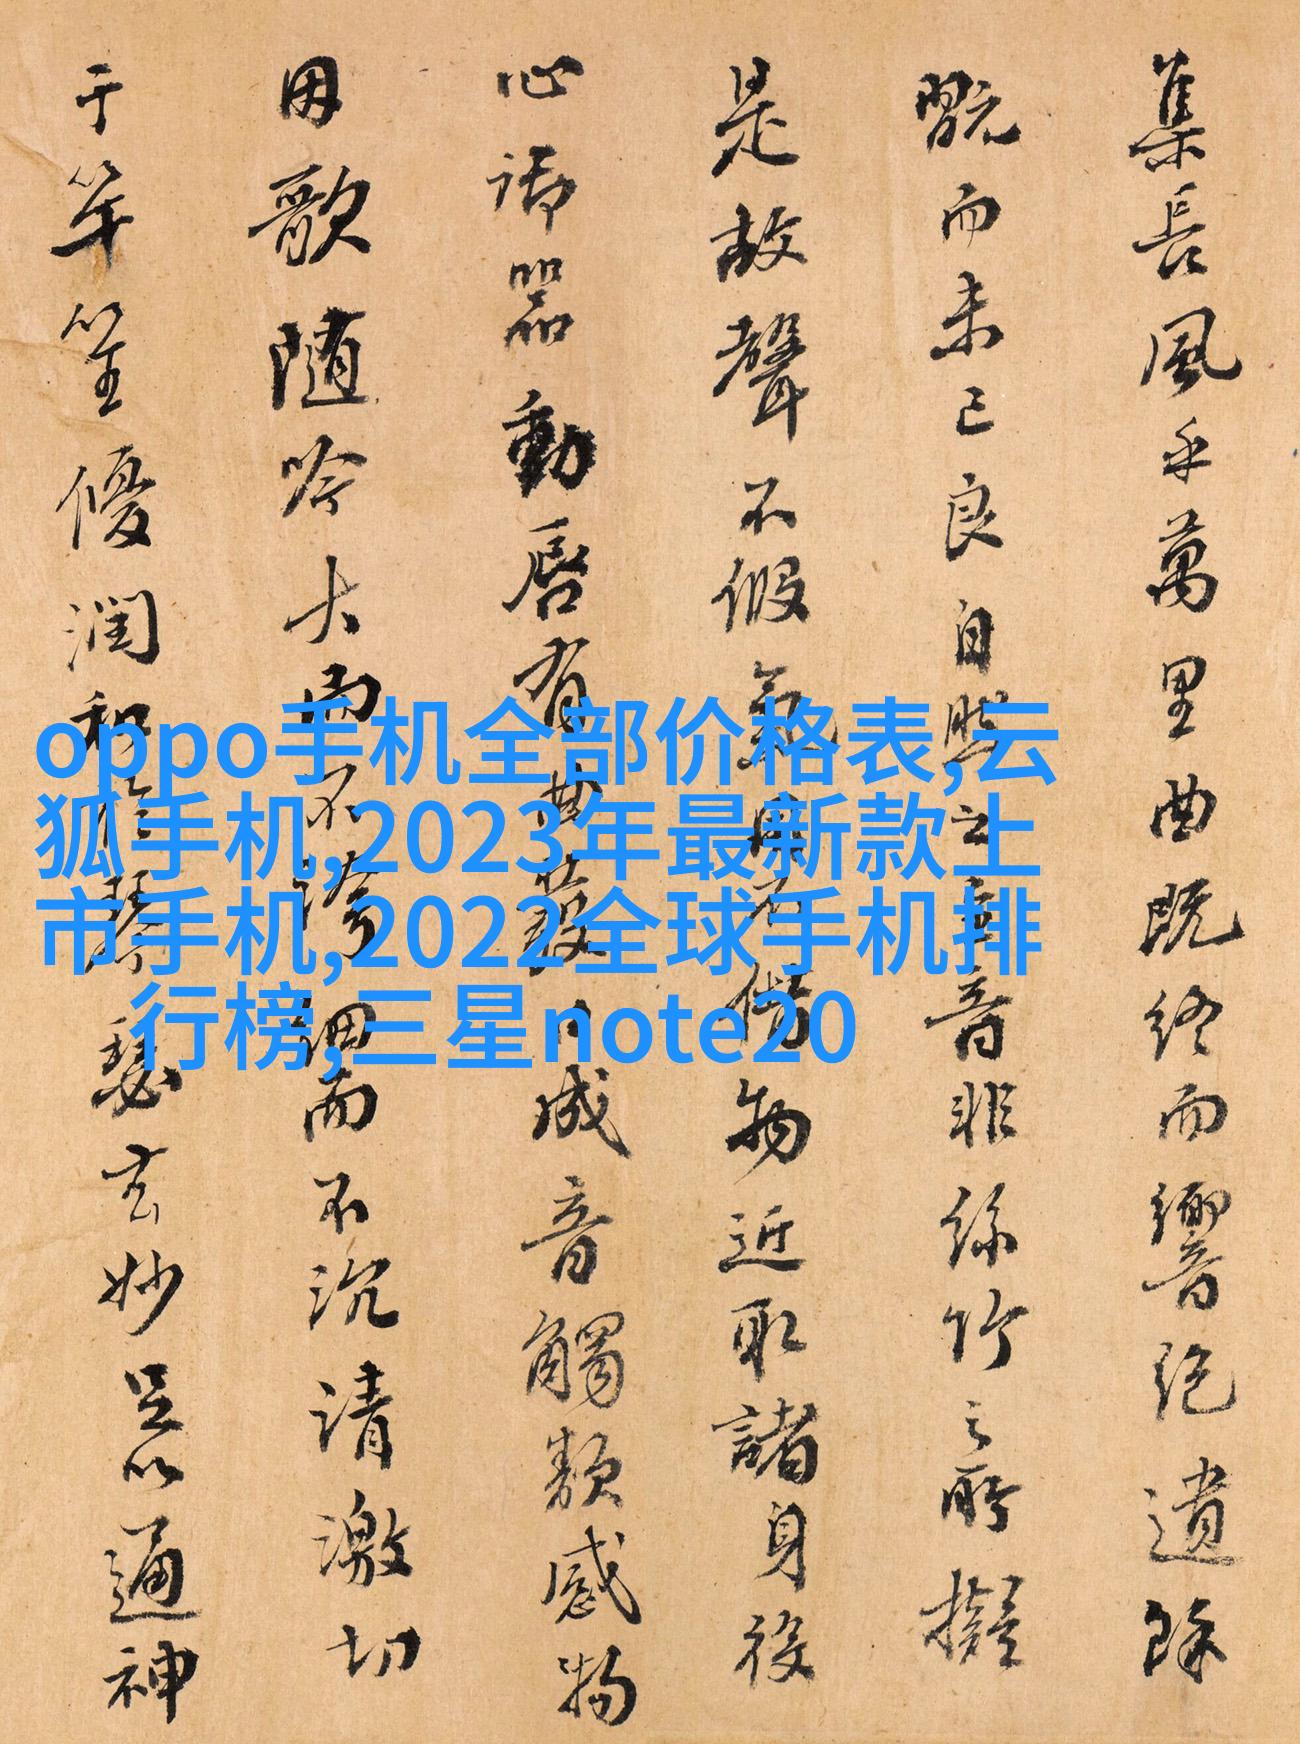 集長風乎萬里曲既終而響絕遺餘
翫而未已良自然之至音非絲竹之所擬
是故聲不假器用不借物近取諸身役
心御器動唇有曲發口成音觸類感物
因歌隨吟大而不洿細而不沉清激切
于竽笙優潤和於琴瑟玄妙足以通神
oppo手机全部价格表,云
狐手机,2023年最新款上
市手机,2022全球手机排
行榜,三星note20